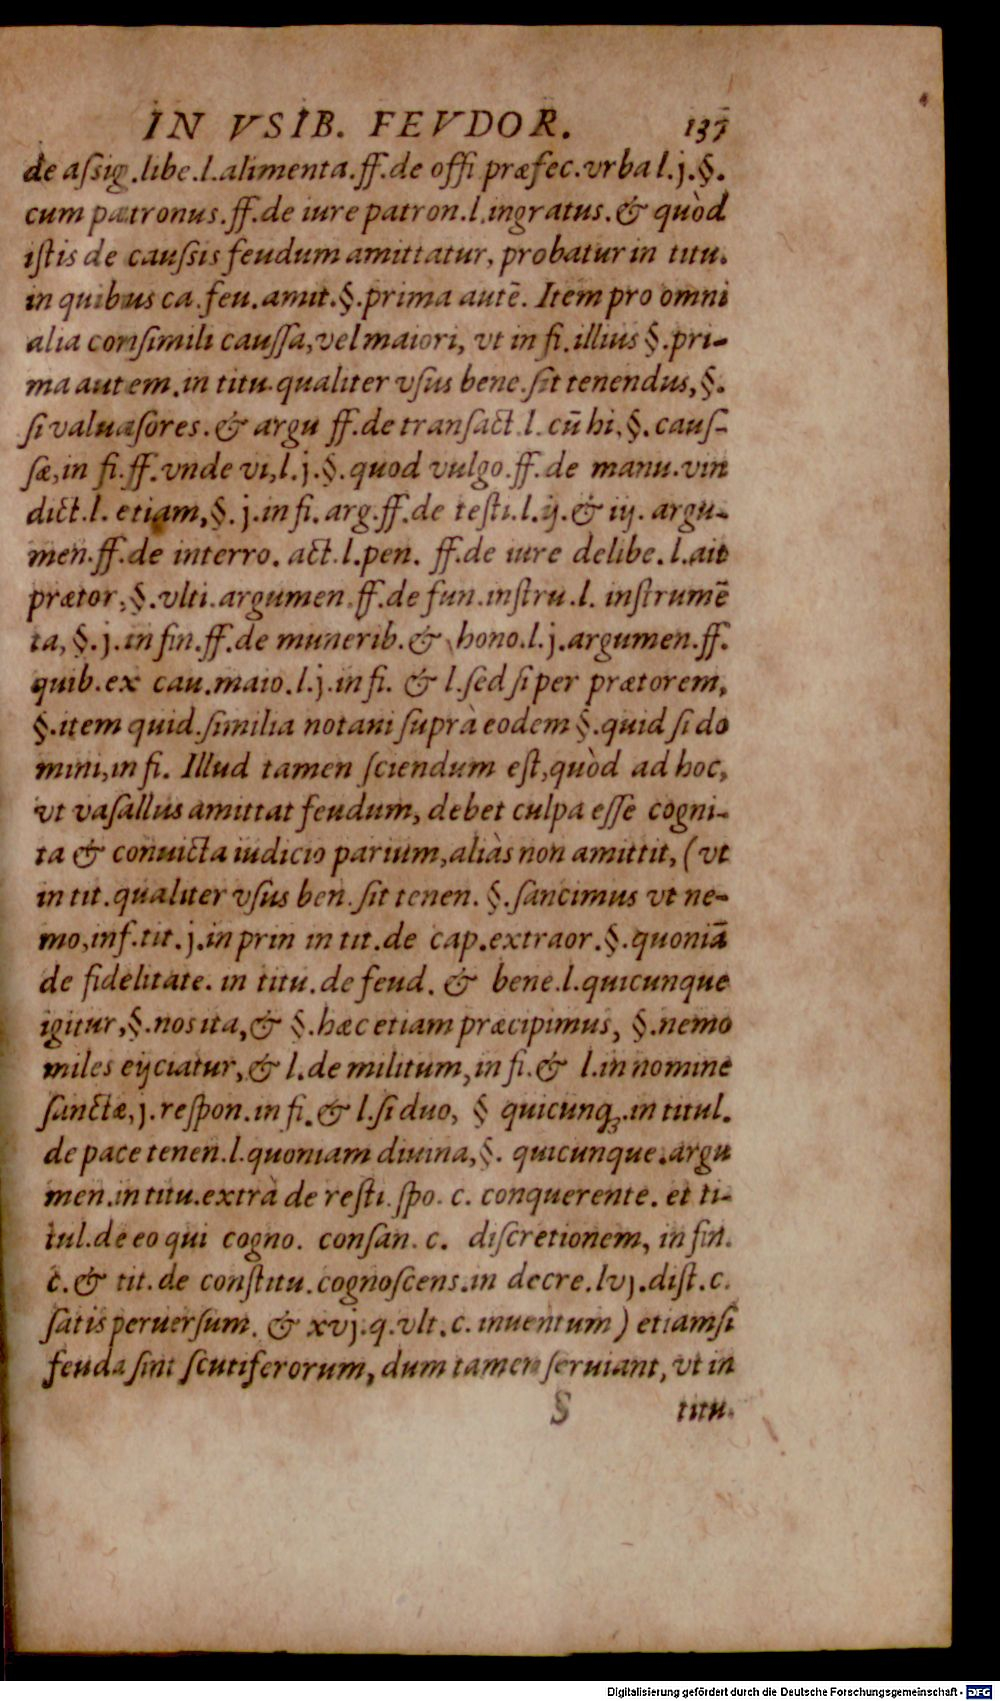 IN VSIB. FEVDOR. 137
de aſsig.libe.l.alimenta.ff.de offi præfec.vrba l.j.§.
cum patronus.ff.de iure patron.l.ingratus.& quòd
iſtis de cauſsis feudum amittatur, probatur in titu.
in quibus ca.feu.amit.§.prima autē. Item pro omni
alia conſimili cauſſa,vel maiori, vt in fi.illius §.pri-
ma autem.in titu.qualiter vſus bene.ſit tenendus,§.
ſi valuaſores.& argu ff.de tranſact.l.cū hi,§.cauſ-
ſæ,in fi.ff.vnde vi,l.j.§.quod vulgo.ff.de manu.vin
dict.l.etiam,§.j.in fi.arg.ff.de teſti.l.ij.& iij.argu-
men.ff.de interro.act.l.pen. ff.de iure delibe.l.ait
prætor,§.vlti.argumen.ff.de fun.inſtru.l. inſtrumē
ta,§.j.in fin.ff.de munerib.& hono.l.j.argumen.ff.
quib.ex cau.maio.l.j.in fi. & l.ſed ſi per prætorem,
§.item quid.ſimilia notani ſuprà eodem §.quid ſi do
mini,in fi. Illud tamen ſciendum eſt,quòd ad hoc,
vt vaſallus amittat feudum, debet culpa eſſe cogni-
ta & conuicta iudicio parium,aliàs non amittit, (vt
in tit.qualiter vſus ben.ſit tenen. §.ſancimus vt ne-
mo,inf.tit.j.in prin in tit.de cap.extraor.§.quoniā
de fidelitate. in titu.de feud. & bene.l.quicunque
igitur,§.nos ita,& §.hæc etiam præcipimus, §.nemo
miles eijciatur,& l.de militum,in fi.& l.in nomine
ſanctæ,j.reſpon.in fi.& l.ſi duo, § quicunq;.in titul.
de pace tenen.l.quoniam diuina,§. quicunque.argu
men.in titu.extrà de reſti.ſpo.c. conquerente. et ti-
tul.de eo qui cogno. conſan. c. diſcretionem, in fin.
c.& tit.de conſtitu.cognoſcens.in decre.lvj.diſt.c.
ſatis peruerſum. & xvj.q.vlt.c.inuentum) etiamſi
feuda ſint ſcutiferorum, dum tamen ſeruiant, vt in
S titu.
Digitalisierung gefördert durch die Deutsche Forschungsgemeinschaft - DFG